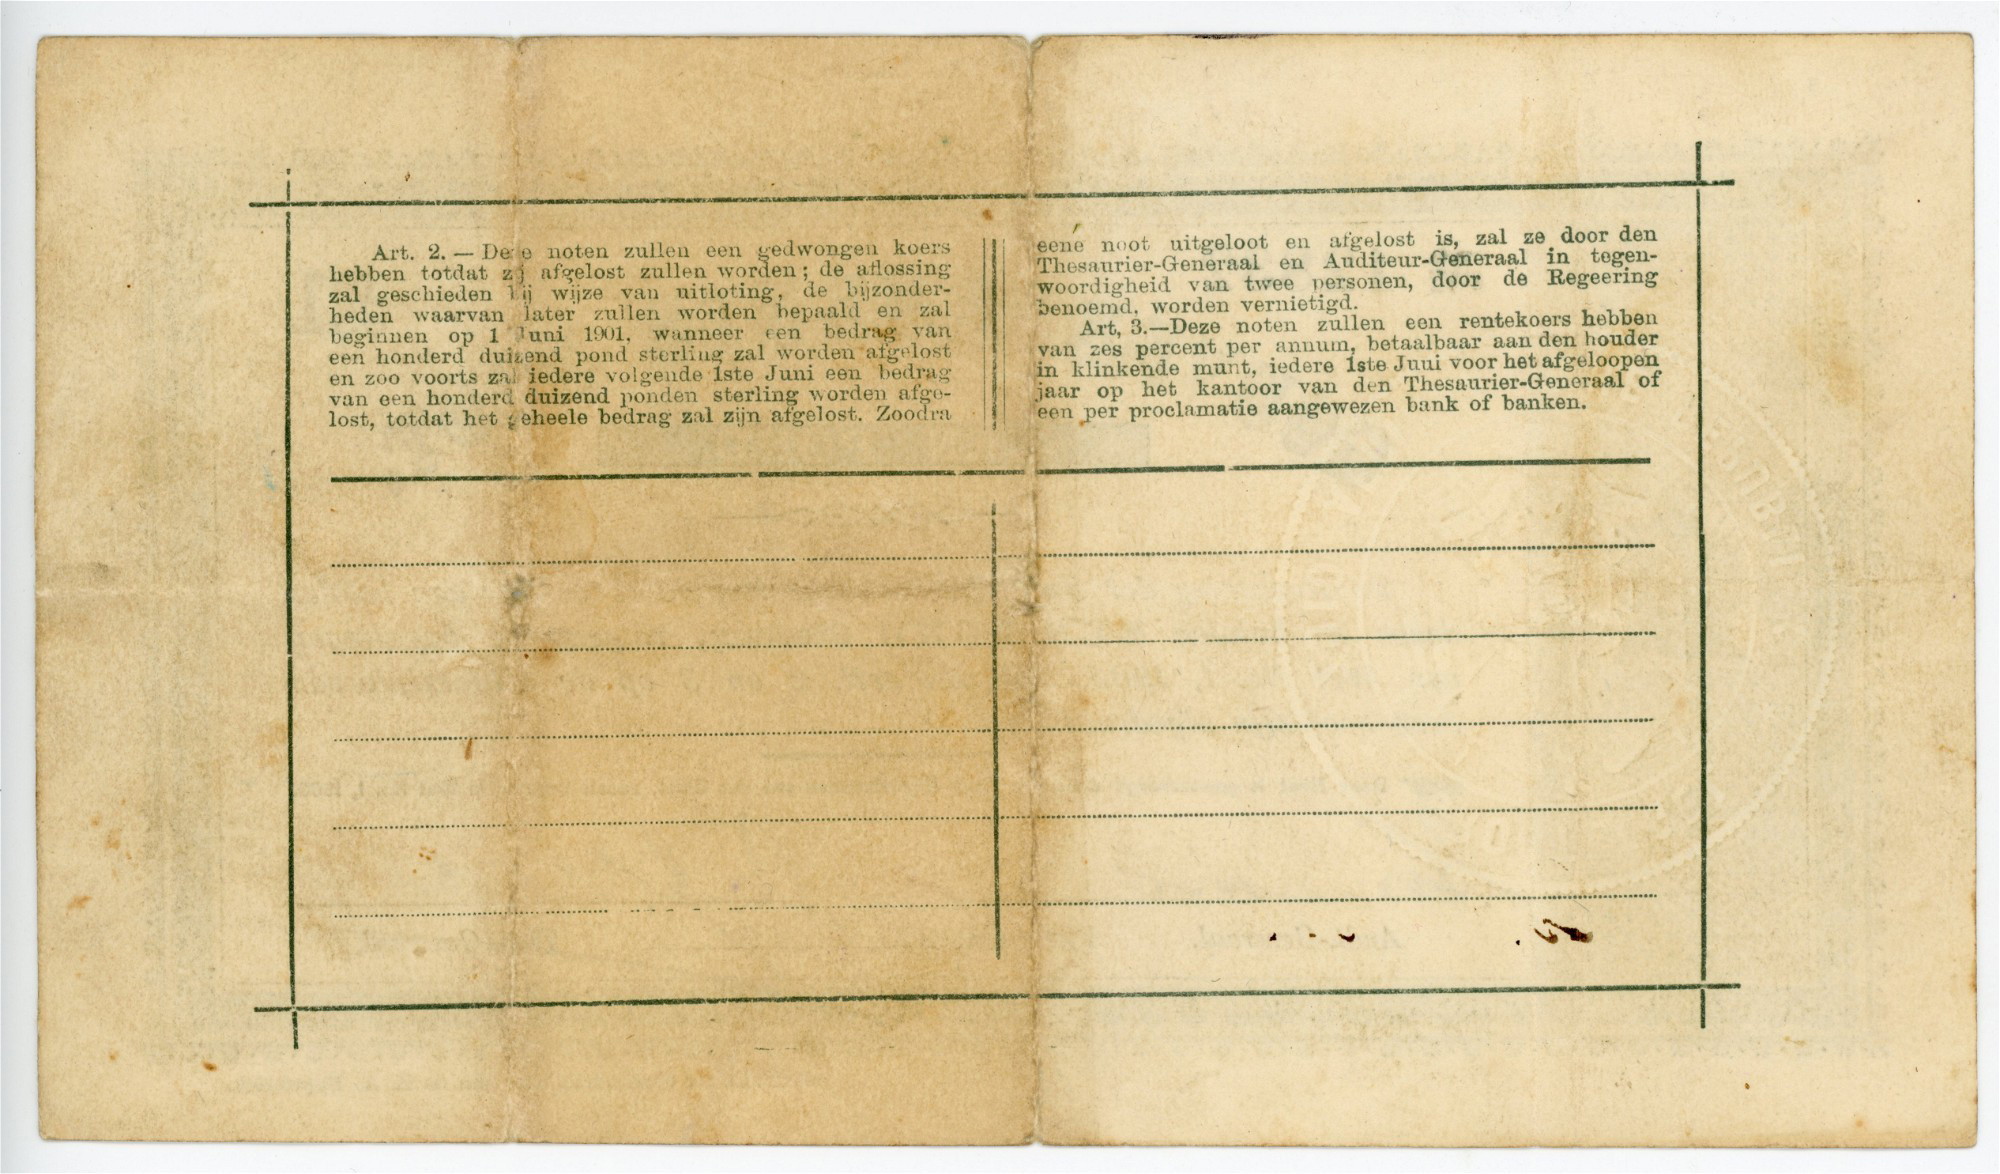 Art. 2. — Deze noten zullen een gedwongen koers
hebben totdat zij afgelost zullen worden; de aflossing
zal geschieden bij wijze van uitloting, de bijzonder-
heden waarvan later zullen worden bepaald en zal
beginnen op 1 Juni 1901, wanneer een bedrag van
een honderd duizend pond sterling zal worden afgelost
en zoo voorts zal iedere volgende 1ste Juni een bedrag
van een honderd duizend ponden sterling worden afge-
lost, totdat het geheele bedrag zal zijn afgelost. Zoodra
eene noot uitgeloot en afgelost is, zal ze door den
Thesaurier-Generaal en Auditeur-Generaal in tegen-
woordigheid van twee personen, door de Regeering
benoemd, worden vernietigd.
Art, 3.—Deze noten zullen een rentekoers hebben
van zes percent per annum, betaalbaar aan den houder
in klinkende munt, iedere 1ste Juni voor het afgeloopen
jaar op het kantoor van den Thesaurier-Generaal of
een per proclamatie aangewezen bank of banken.